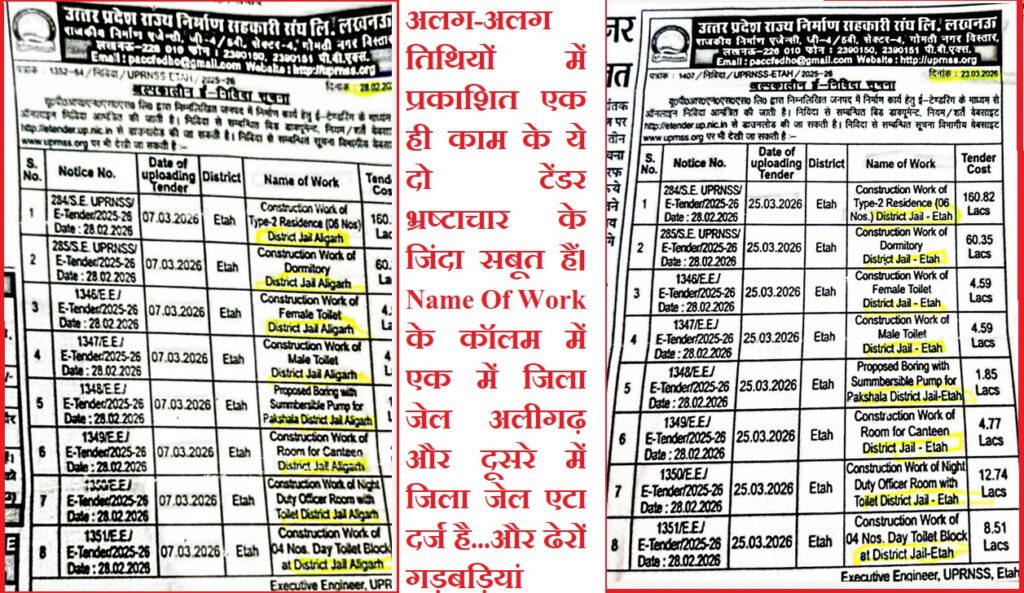 उत्तर प्रदेश राज्य निर्माण सहकारी संघ लि. लखनऊ
राजकीय निर्माण एजेन्सी, जी-4/5बी, सेक्टर-4, गोमती नगर विस्तार,
लखनऊ-226 010 फोन : 2390150, 2390151 पी.बी.एक्स.
Email : paccfedho@gmail.com Website : http://uprnss.org
पत्रांक : 1352-64 / निविदा / UPRNSS ETAH / 2025-26
दिनांक : 28.02.
अल्पकालीन ई-निविदा सूचना
यू०पी०आर०एन०एस०एस० लि० द्वारा निम्नलिखित जनपद में निर्माण कार्य हेतु ई-टेण्डरिंग के माध्यम से
ऑनलाइन निविदा आमंत्रित की जाती है। निविदा से सम्बन्धित बिड डाक्यूमेन्ट, नियम/शर्तें वेबसाइट
http://etender.up.nic.in से डाउनलोड की जा सकती है। निविदा से सम्बन्धित सूचना विभागीय वेबसाइट
www.uprnss.org पर भी देखी जा सकती है।
S. No. Notice No. Date of uploading Tender District Name of Work Tend Cost
1 284/S.E. UPRNSS/ E-Tender/2025-26 Date : 28.02.2026 07.03.2026 Etah Construction Work of Type-2 Residence (06 Nos) District Jail Aligarh 160. Lac
2 285/S.E. UPRNSS/ E-Tender/2025-26 Date : 28.02.2026 07.03.2026 Etah Construction Work of Dormitory District Jail Aligarh 60. La
3 1346/E.E./ E-Tender/2025-26 Date : 28.02.2026 07.03.2026 Etah Construction Work of Female Toilet District Jail Aligarh 4. La
4 1347/E.E./ E-Tender/2025-26 Date : 28.02.2026 07.03.2026 Etah Construction Work of Male Toilet District Jail Aligarh
5 1348/E.E./ E-Tender/2025-26 Date : 28.02.2026 07.03.2026 Etah Proposed Boring with Summbersible Pump for Pakshala District Jail Aligarh
6 1349/E.E./ E-Tender/2025-26 Date : 28.02.2026 07.03.2026 Etah Construction Work of Room for Canteen District Jail Aligarh
7 1350/E.E./ E-Tender/2025-26 Date : 28.02.2026 07.03.2026 Etah Construction Work of Night Duty Officer Room with Toilet District Jail Aligarh
8 1351/E.E./ E-Tender/2025-26 Date : 28.02.2026 07.03.2026 Etah Construction Work of 04 Nos. Day Toilet Block at District Jail Aligarh
Executive Engineer, UPRNSS,
अलग-अलग
तिथियों में
प्रकाशित एक
ही काम के ये
दो टेंडर
भ्रष्टाचार के
जिंदा सबूत हैं।
Name Of Work
के कॉलम में
एक में जिला
जेल अलीगढ़
और दूसरे में
जिला जेल एटा
दर्ज है...और ढेरों
गड़बड़ियां
उत्तर प्रदेश राज्य निर्माण सहकारी संघ लि. लखनऊ
राजकीय निर्माण एजेन्सी, जी-4/5बी, सेक्टर-4, गोमती नगर विस्तार,
लखनऊ-226 010 फोन : 2390150, 2390151 पी.बी.एक्स.
Email : paccfedho@gmail.com Website : http://uprnss.org
पत्रांक : 1407 / निविदा / UPRNSS-ETAH / 2025-26
दिनांक : 23.03.2026
अल्पकालीन ई-निविदा सूचना
यू०पी०आर०एन०एस०एस० लि० द्वारा निम्नलिखित जनपद में निर्माण कार्य हेतु ई-टेण्डरिंग के माध्यम से
ऑनलाइन निविदा आमंत्रित की जाती है। निविदा से सम्बन्धित बिड डाक्यूमेन्ट, नियम/शर्तें वेबसाइट
http://etender.up.nic.in से डाउनलोड की जा सकती है। निविदा से सम्बन्धित सूचना विभागीय वेबसाइट
www.uprnss.org पर भी देखी जा सकती है।
S. No. Notice No. Date of uploading Tender District Name of Work Tender Cost
1 284/S.E. UPRNSS/ E-Tender/2025-26 Date : 28.02.2026 25.03.2026 Etah Construction Work of Type-2 Residence (06 Nos.) District Jail - Etah 160.82 Lacs
2 285/S.E. UPRNSS/ E-Tender/2025-26 Date : 28.02.2026 25.03.2026 Etah Construction Work of Dormitory District Jail - Etah 60.35 Lacs
3 1346/E.E./ E-Tender/2025-26 Date : 28.02.2026 25.03.2026 Etah Construction Work of Female Toilet District Jail - Etah 4.59 Lacs
4 1347/E.E./ E-Tender/2025-26 Date : 28.02.2026 25.03.2026 Etah Construction Work of Male Toilet District Jail - Etah 4.59 Lacs
5 1348/E.E./ E-Tender/2025-26 Date : 28.02.2026 25.03.2026 Etah Proposed Boring with Summbersible Pump for Pakshala District Jail-Etah 1.85 Lacs
6 1349/E.E./ E-Tender/2025-26 Date : 28.02.2026 25.03.2026 Etah Construction Work of Room for Canteen District Jail - Etah 4.77 Lacs
7 1350/E.E./ E-Tender/2025-26 Date : 28.02.2026 25.03.2026 Etah Construction Work of Night Duty Officer Room with Toilet District Jail - Etah 12.74 Lacs
8 1351/E.E./ E-Tender/2025-26 Date : 28.02.2026 25.03.2026 Etah Construction Work of 04 Nos. Day Toilet Block at District Jail-Etah 8.51 Lacs
Executive Engineer, UPRNSS, Etah